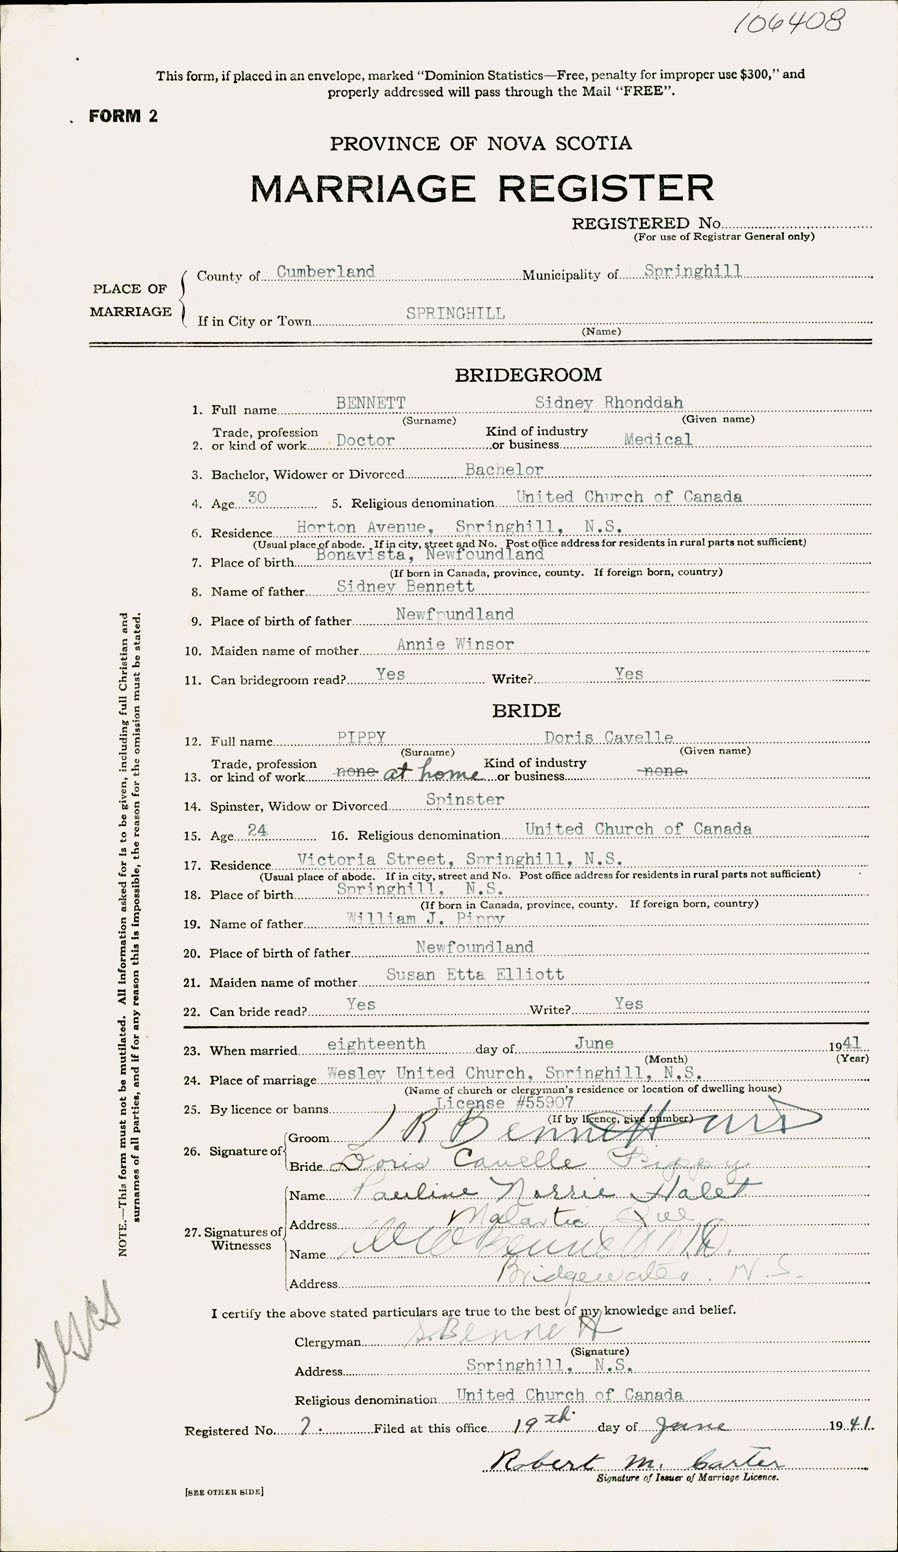 106408
This form, if placed in an envelope, marked "Dominion Statistics—Free, penalty for improper use $300," and
properly addressed will pass through the Mail "FREE".
FORM 2
PROVINCE OF NOVA SCOTIA
MARRIAGE REGISTER
REGISTERED No.
(For use of Registrar General only)
PLACE OF MARRIAGE
County of Cumberland Municipality of Springhill
If in City or Town SPRINGHILL
(Name)
BRIDEGROOM
1. Full name BENNETT Sidney Rhonddah
(Surname) (Given name)
2. Trade, profession or kind of work Doctor Kind of industry or business Medical
3. Bachelor, Widower or Divorced Bachelor
4. Age 30 5. Religious denomination United Church of Canada
6. Residence Horton Avenue, Springhill, N.S.
(Usual place of abode. If in city, street and No. Post office address for residents in rural parts not sufficient)
7. Place of birth Bonavista, Newfoundland
(If born in Canada, province, county. If foreign born, country)
8. Name of father Sidney Bennett
9. Place of birth of father Newfoundland
10. Maiden name of mother Annie Winsor
11. Can bridegroom read? Yes Write? Yes
BRIDE
12. Full name PIPPY Doris Cavelle
(Surname) (Given name)
13. Trade, profession or kind of work none at home Kind of industry or business none.
14. Spinster, Widow or Divorced Spinster
15. Age 24 16. Religious denomination United Church of Canada
17. Residence Victoria Street, Springhill, N.S.
(Usual place of abode. If in city, street and No. Post office address for residents in rural parts not sufficient)
18. Place of birth Springhill, N.S.
(If born in Canada, province, county. If foreign born, country)
19. Name of father William J. Pippy
20. Place of birth of father Newfoundland
21. Maiden name of mother Susan Etta Elliott
22. Can bride read? Yes Write? Yes
23. When married eighteenth day of June 1941
(Month) (Year)
24. Place of marriage Wesley United Church, Springhill, N.S.
(Name of church or clergyman's residence or location of dwelling house)
25. By licence or banns License #55907
(If by licence, give number)
26. Signature of
Groom R Bennett MD
Bride Doris Cavelle Pippy
27. Signatures of Witnesses
Name Pauline Norrie Halet
Address Malartic Que
Name Bennett M.D.
Address Bridgewater. N.S.
I certify the above stated particulars are true to the best of my knowledge and belief.
Clergyman S. Bennett
(Signature)
Address Springhill, N.S.
Religious denomination United Church of Canada
Registered No. 7. Filed at this office 19th day of June 1941.
Robert M. Carter
Signature of Issuer of Marriage Licence.
[SEE OTHER SIDE]
NOTE.—This form must not be mutilated. All information asked for is to be given, including full Christian and
surnames of all parties, and if for any reason this is impossible, the reason for the omission must be stated.